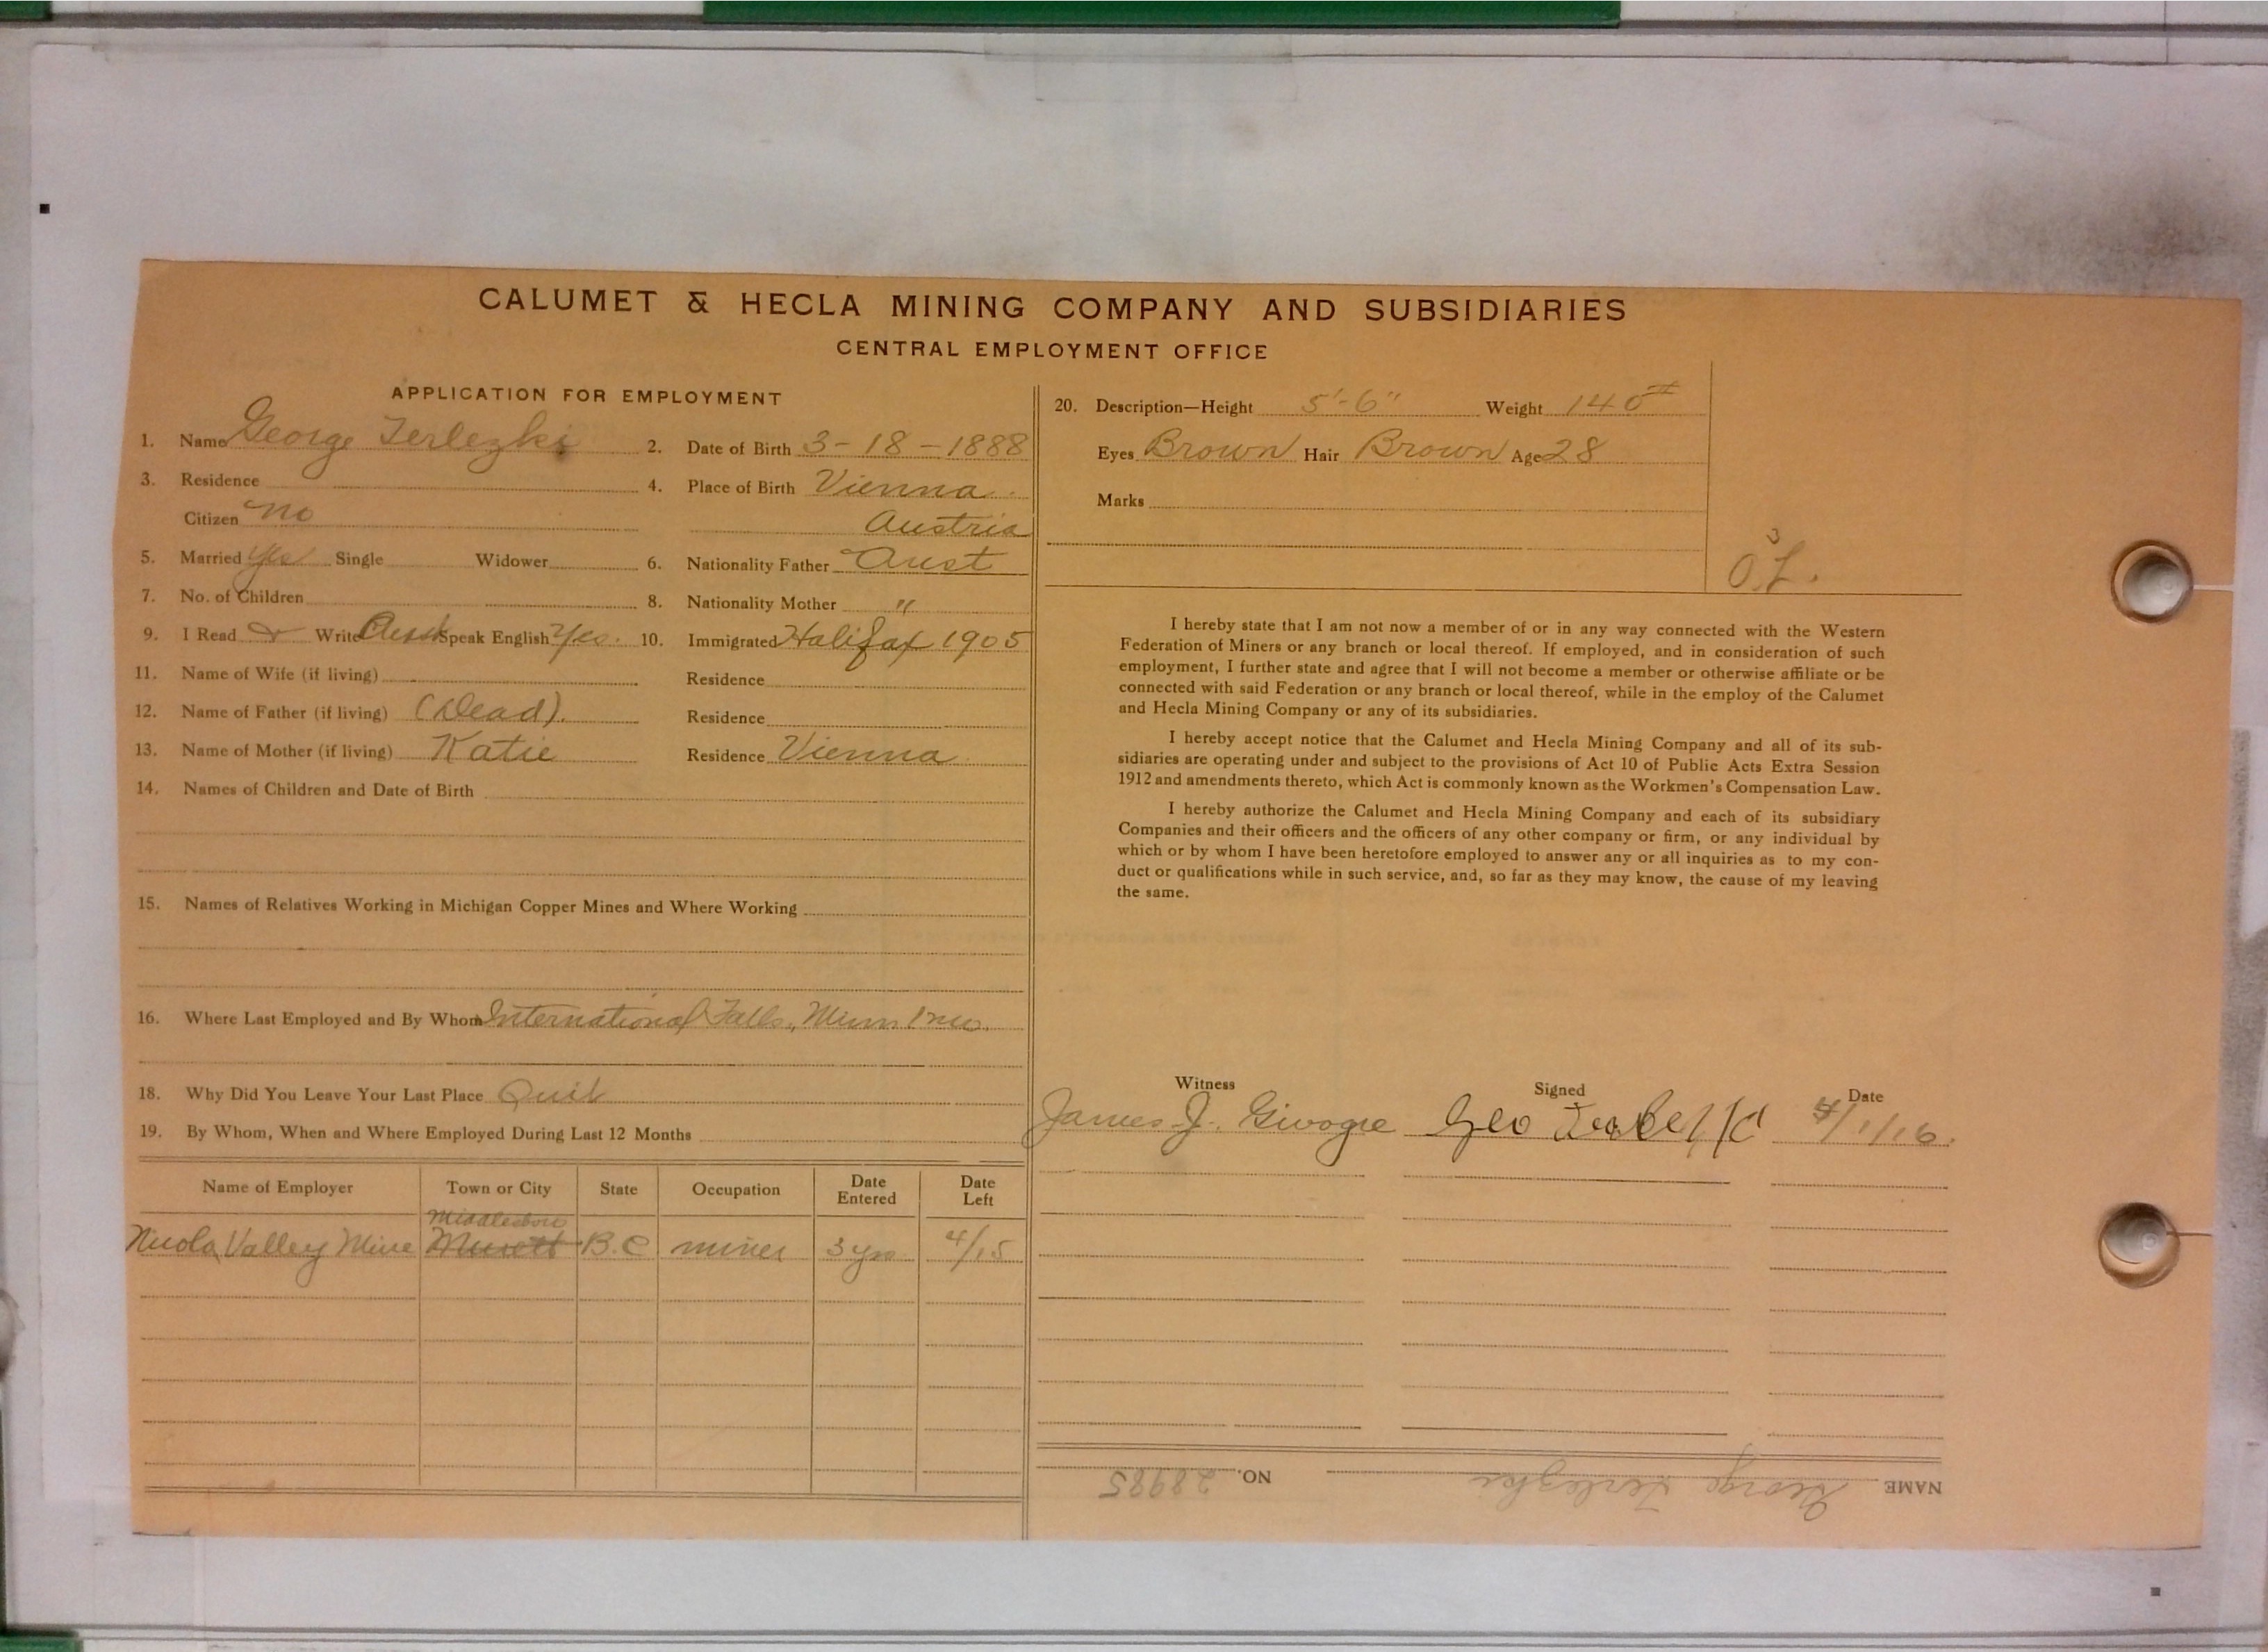 CALUMET & HECLA MINING COMPANY AND SUBSIDIARIES
CENTRAL EMPLOYMENT OFFICE
APPLICATION FOR EMPLOYMENT
1. Name George Terlezki 2. Date of Birth 3-18-1888
3. Residence 4. Place of Birth Vienna
Citizen no Austria
5. Married yes Single Widower 6. Nationality Father Aust
7. No. of Children 8. Nationality Mother "
9. I Read & Write Aust Speak English Yes. 10. Immigrated Halifax 1905
11. Name of Wife (if living) Residence
12. Name of Father (if living) (Dead). Residence
13. Name of Mother (if living) Katie Residence Vienna
14. Names of Children and Date of Birth
15. Names of Relatives Working in Michigan Copper Mines and Where Working
16. Where Last Employed and By Whom International Falls, Minn 1 mo.
18. Why Did You Leave Your Last Place Quit
19. By Whom, When and Where Employed During Last 12 Months
Name of Employer Town or City State Occupation Date Entered Date Left
Middlesboro
Nicola Valley Mine B.C miner 3 yrs 4/15
20. Description—Height 5'-6" Weight 140#
Eyes Brown Hair Brown Age 28
Marks
O.L.
I hereby state that I am not now a member of or in any way connected with the Western
Federation of Miners or any branch or local thereof. If employed, and in consideration of such
employment, I further state and agree that I will not become a member or otherwise affiliate or be
connected with said Federation or any branch or local thereof, while in the employ of the Calumet
and Hecla Mining Company or any of its subsidiaries.
I hereby accept notice that the Calumet and Hecla Mining Company and all of its sub-
sidiaries are operating under and subject to the provisions of Act 10 of Public Acts Extra Session
1912 and amendments thereto, which Act is commonly known as the Workmen's Compensation Law.
I hereby authorize the Calumet and Hecla Mining Company and each of its subsidiary
Companies and their officers and the officers of any other company or firm, or any individual by
which or by whom I have been heretofore employed to answer any or all inquiries as to my con-
duct or qualifications while in such service, and, so far as they may know, the cause of my leaving
the same.
Witness Signed Date
James J. Geo 4/1/16.
NAME George Terlezki NO. 28985